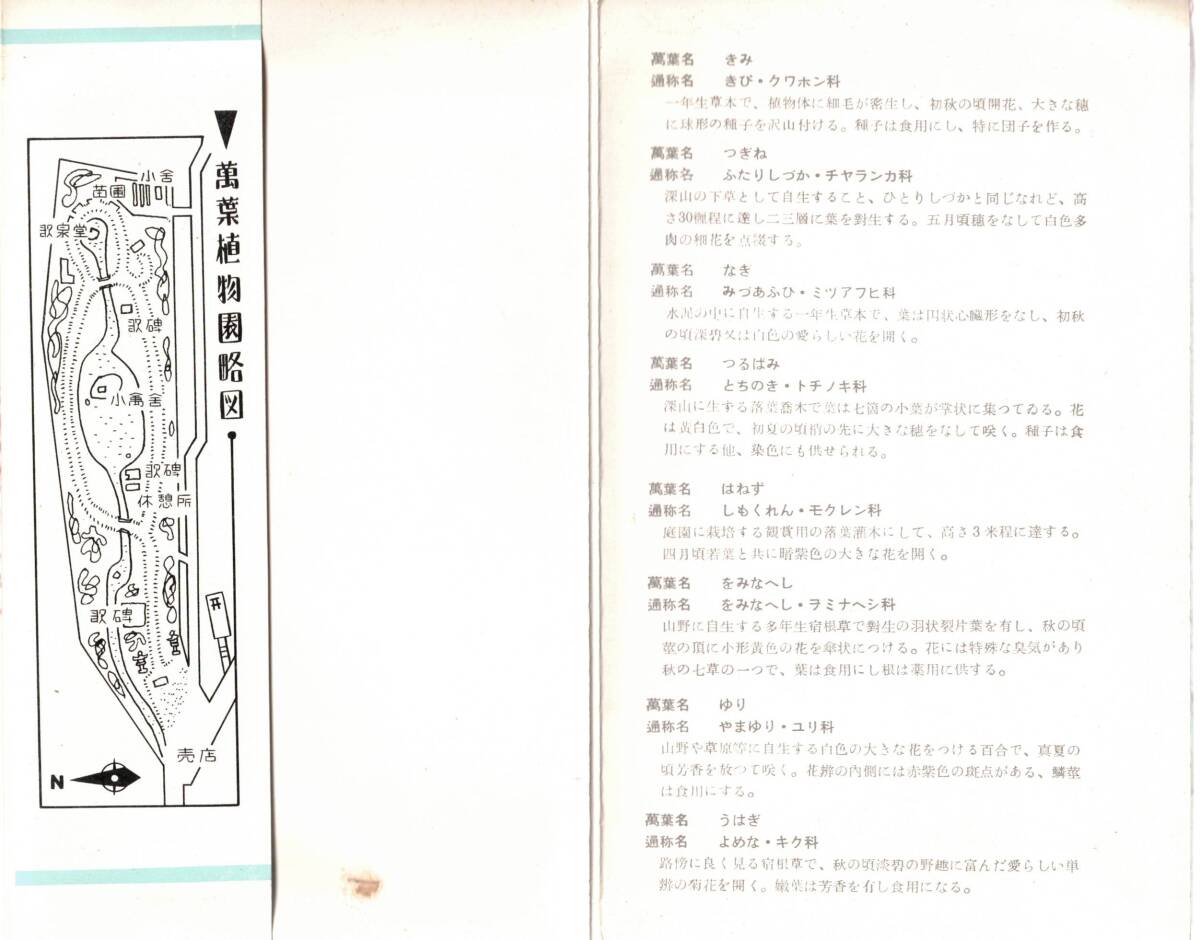 萬葉植物園略図
小舎
苗圃
歌泉堂
歌碑
小禽舎
歌碑
休憩所
歌碑
売店
N
萬葉名 きみ
通称名 きび・クワホン科
一年生草本で、植物体に細毛が密生し、初秋の頃開花、大きな穂
に球形の種子を沢山付ける。種子は食用にし、特に団子を作る。
萬葉名 つぎね
通称名 ふたりしづか・チヤランカ科
深山の下草として自生すること、ひとりしづかと同じなれど、高
さ30糎程に達し二三層に葉を對生する。五月頃穂をなして白色多
肉の細花を点綴する。
萬葉名 なぎ
通称名 みづあふひ・ミツアフヒ科
水泥の中に自生する一年生草本で、葉は円状心臓形をなし、初秋
の頃深碧又は白色の愛らしい花を開く。
萬葉名 つるばみ
通称名 とちのき・トチノキ科
深山に生ずる落葉喬木で葉は七箇の小葉が掌状に集つてゐる。花
は黄白色で、初夏の頃梢の先に大きな穂をなして咲く。種子は食
用にする他、染色にも供せられる。
萬葉名 はねず
通称名 しもくれん・モクレン科
庭園に栽培する観賞用の落葉灌木にして、高さ3米程に達する。
四月頃若葉と共に暗紫色の大きな花を開く。
萬葉名 をみなへし
通称名 をみなへし・ヲミナヘシ科
山野に自生する多年生宿根草で對生の羽状裂片葉を有し、秋の頃
莖の頂に小形黄色の花を傘状につける。花には特殊な臭気があり
秋の七草の一つで、葉は食用にし根は薬用に供する。
萬葉名 ゆり
通称名 やまゆり・ユリ科
山野や草原等に自生する白色の大きな花をつける百合で、真夏の
頃芳香を放つて咲く。花辨の內側には赤紫色の斑点がある、鱗莖
は食用にする。
萬葉名 うはぎ
通称名 よめな・キク科
路傍に良く見る宿根草で、秋の頃淡碧の野趣に富んだ愛らしい単
辨の菊花を開く。嫩葉は芳香を有し食用になる。